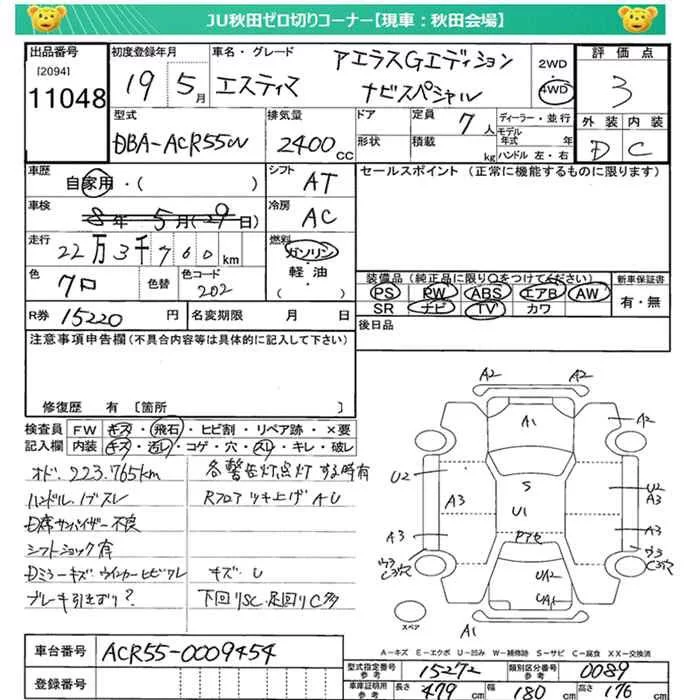 JU秋田ゼロ切りコーナー【現車：秋田会場】
出品番号
[2094]
11048
初度登録年月
19 5月
車名・グレード
エスティマ
アエラスGエディション
ナビスペシャル
2WD
・
4WD
評価点
3
外装 内装
D C
型式
DBA-ACR55W
排気量
2400cc
ドア
形状
定員
7人
積載
kg
ディーラー・並行
モデル年式 年
ハンドル 左・右
車歴
自家用・( )
シフト
AT
セールスポイント (正常に機能するものに限ります)
車検
8年5月(29日)
冷房
AC
走行
22万3千760km
燃料
ガソリン
・
軽油
・
( )
色
クロ
色替
色コード
202
装備品(純正品に限り○をつけてください)
PS PW ABS エアB AW
SR ナビ TV カワ
新車保証書
有・無
R券 15220円
名変期限 月 日
後日品
注意事項申告欄(不具合内容等は具体的に記入して下さい)
修復歴 有 [箇所 ]
検査員記入欄
FW キズ・飛石・ヒビ割・リペア跡・×要
内装 キズ・汚レ・コゲ・穴・スレ・キレ・破レ
オド.223.765km
ハンドル.ノブスレ
D席サンバイザー不良
シフトショック有
Dミラーキズ.ウインカーヒビワレ
ブレーキ引きずり?
各警告灯点灯する時有
Rフロアツキ上ゲAU
キズ・U
下回りSC.足回りC多
A2 A2
A1
A2
U2
S
U2
A3
A3
U1
A3
A3
Pアセ
C3穴
C3穴
UA2
UA1
スペア
A1
A−キズ E−エクボ U−凹み W−補修跡 S−サビ C−腐食 XX−交換済
車台番号
ACR55-0009454
登録番号
型式指定番号
参考
15272
類別区分番号
参考
0089
車庫証明用
参考
長さ 479cm
幅 180cm
高さ 176cm